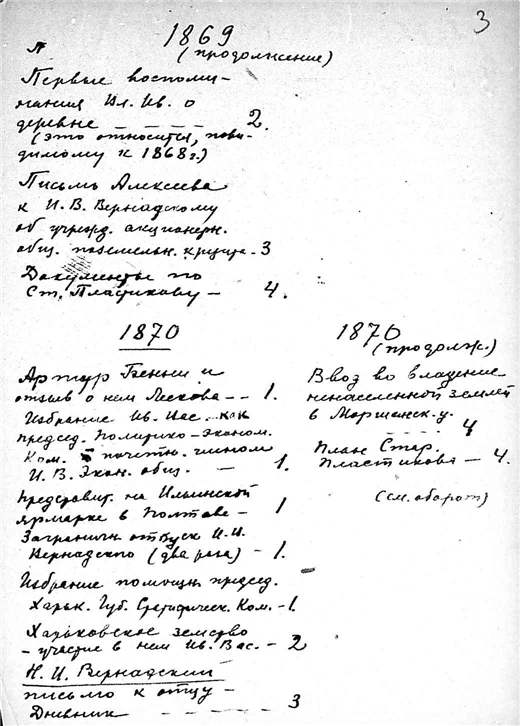 3
1869
(продолжение)
Первые воспоми-
нания Вл. Ив. о
деревне - - - - - 2.
(это относится, пови-
димому к 1868 г.)
Письмо Алексеева
к И. В. Вернадскому
об учрежд. акционерн.
общ. поземельн. кредита - 3
Документы по
Ст. Пластикову - 4.
1870
Артур Бенни и
отзыв о нем Лескова - - 1.
Избрание Ив. Вас. как
председ. Политико-Эконом.
Ком. и почетн. членом
И. В. Экон. общ. - - 1.
Представит. на Ильинской
ярмарке в Полтаве - 1
Заграничн. отпуск И. И.
Вернадского (два раза) - 1.
Избрание помощн. председ.
Харьк. Губ. Статистическ. Ком. - 1.
Харьковское земство
- участие в нем Ив. Вас. - 2
Н. И. Вернадский
письмо к отцу -
Дневник - - - - 3
1870
(продолж.)
Ввоз во владение
ненаселенной землей
в Моршанск. у.
- - - - 4
План Стар.
Пластиково - 4.
(см. оборот)